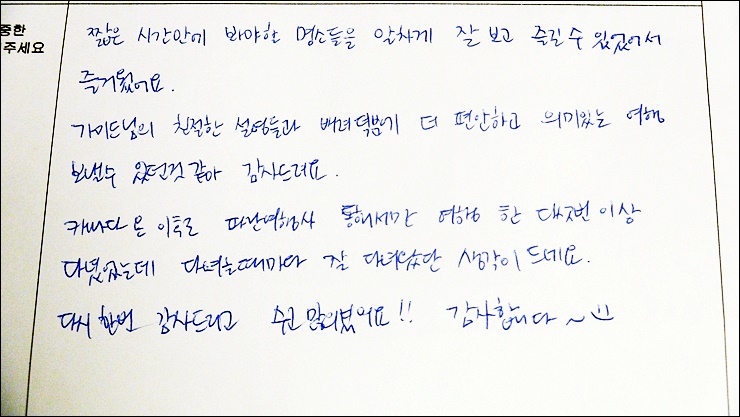 중한
주세요
짧은 시간안에 봐야할 명소들을 알차게 잘 보고 즐길수 있었어서
즐거웠어요.
가이드님의 친절한 설명들과 배려덕분에 더 편안하고 의미있는 여행
보낼수 있었던것 같아 감사드려요.
캐나다 온 이후로 파란여행사 통해서만 여행 한 다섯번 이상
다녔었는데 다녀올때마다 잘 다녀왔단 생각이 드네요.
다시 한번 감사드리고 수고 많으셨어요!! 감사합니다~